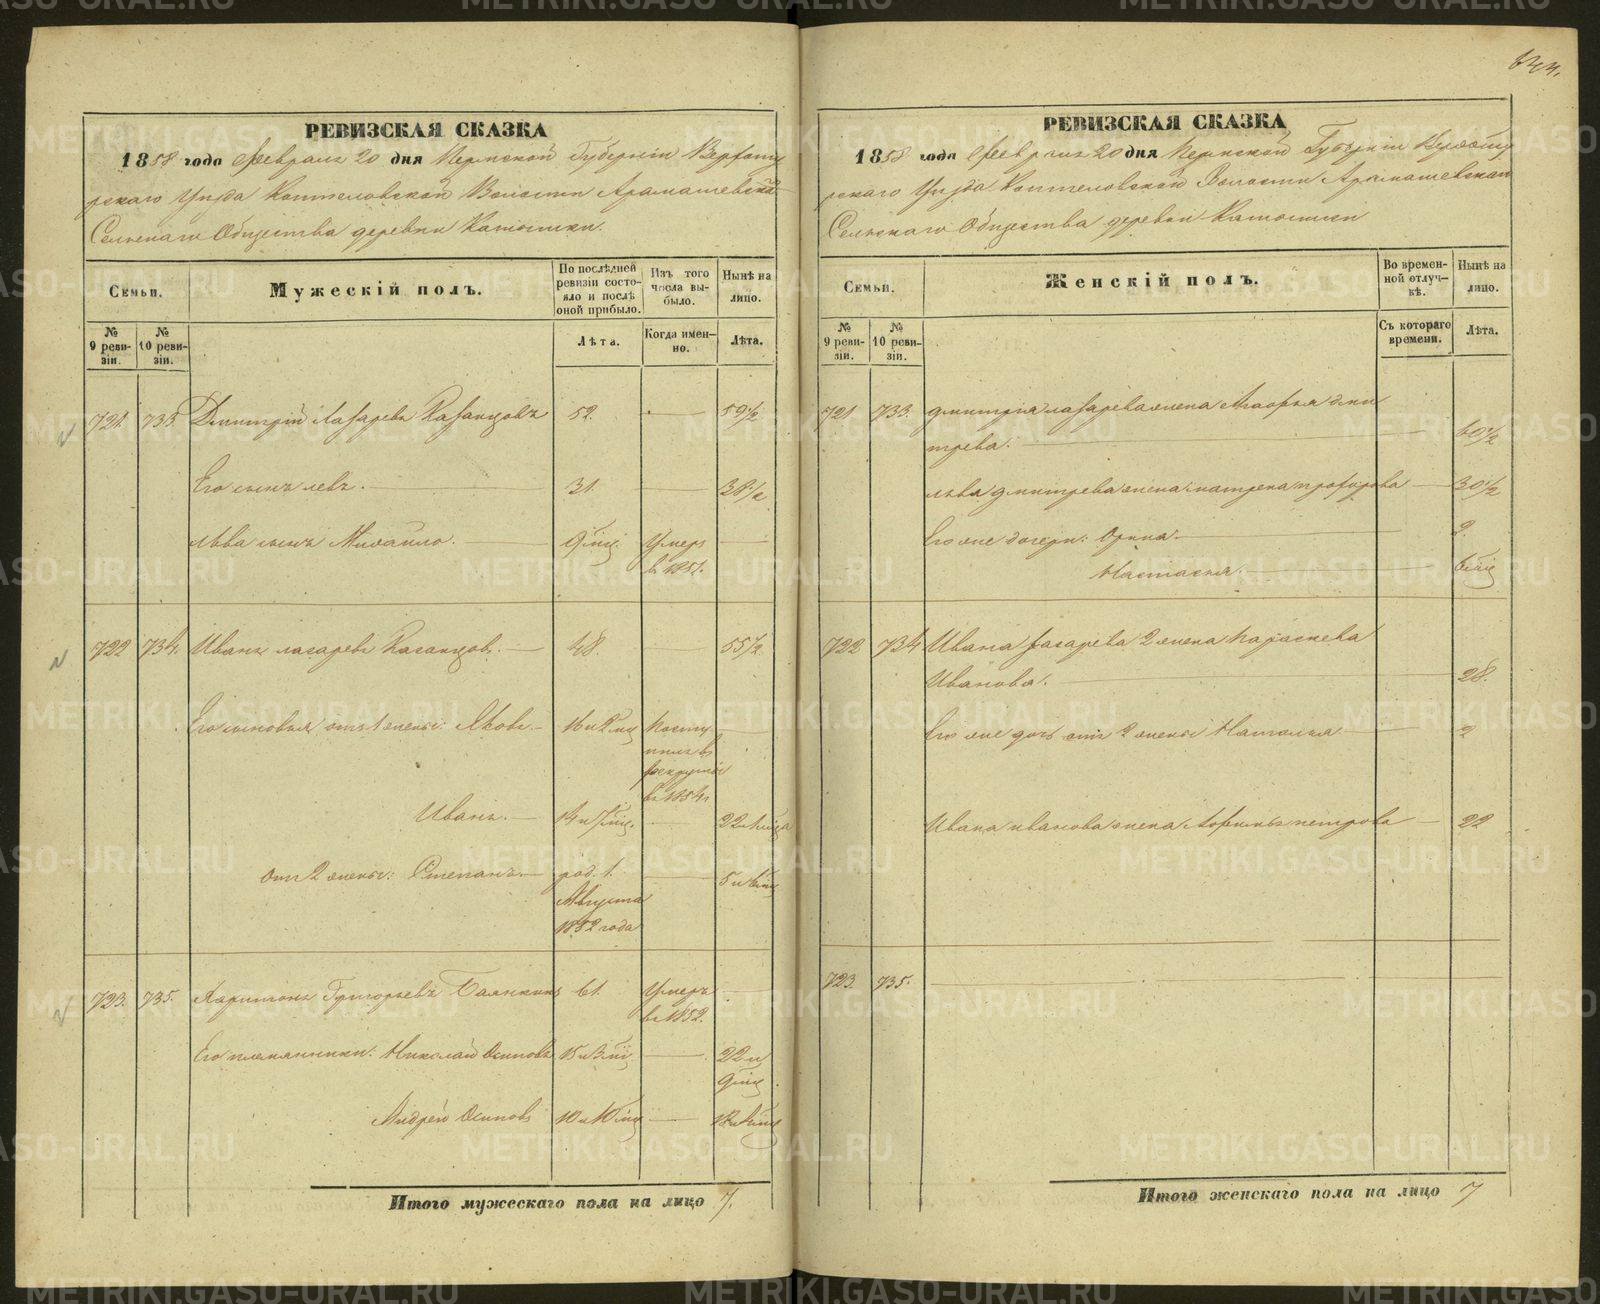 644.
РЕВИЗСКАЯ СКАЗКА
1858 года Февраля 20 дня Пермской Губерніи Верхоту
рскаго Уѣзда Коптеловской Волости Арамашевска
Сельскаго Общества деревни
Семьи.
Мужескій полъ.
По послѣдней ревизіи состояло и послѣ оной прибыло.
Изъ того числа выбыло.
Нынѣ на лицо.
№ 9 ревизіи.
№ 10 ревизіи.
Лѣта.
Когда именно.
Лѣта.
721. 733. Дмитрій Лазаревъ Казанцовъ 52. 59½
Его сынъ Левъ. 31. 38½
Льва сынъ Михайло. 9 мѣс. Умеръ
въ 1851.
722 734. Иванъ Лазаревъ Казанцовъ. 48. 55½
Его сыновья отъ 1 жены: Яковъ 16 и Посту
пилъ въ
рекруты
въ 1854 г
Иванъ. 14 и 22
от 2 жены: Степанъ. род. 1. 5 и 6 мѣс
Августа
1852 года
723. 735. Харитонъ Григорьевъ 61. Умеръ
въ 1852.
Его племянники: Николай Осиповъ 15 и 3 мѣ 22 и
9 мѣс
Андрей Осиповъ 10 и 10 мѣс
Итого мужескаго пола на лицо 7.
РЕВИЗСКАЯ СКАЗКА
1858 года Февраля 20 дня Пермской Губерніи Верхоту
рскаго Уѣзда Коптеловской Волости Арамашевскаго
Сельскаго Общества деревни
Семьи.
Женскій полъ.
Во временной отлучкѣ.
Нынѣ на лицо.
№ 9 ревизіи.
№ 10 ревизіи.
Съ котораго времени.
Лѣта.
721 733. Дмитрія Лазарева жена Дми
трева. 60½
Льва Дмитрева жена Матрена 30½
Его же дочери: Орина. 2.
Настасья. 6 мѣс
722 734 Ивана Лазарева 2 жена Параскева
Иванова. 28.
Его же дочь отъ 2 жены Наталья 2
Ивана Иванова жена Петрова 22
723. 735.
Итого женскаго пола на лицо 7
METRIKI.GASO-URAL.RU